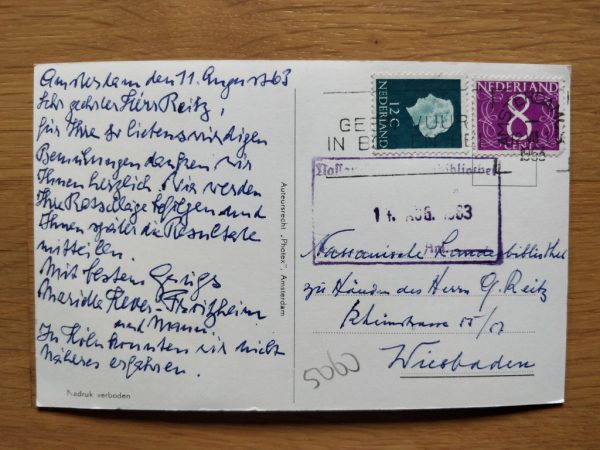 Amsterdam den 11. August 63
Sehr geehrter Herr Reitz,
für Ihre so liebenswürdigen
Bemühungen danken wir
Ihnen herzlich. Wir werden
Ihre Ratschläge befolgen und
Ihnen später die Resultate
mitteilen.
Mit besten Gruß
Hever-Pforzheim
und Mann.
In Köln konnten wir nicht
Näheres erfahren.
Nadruk verboden
Auteursrecht „Photex", Amsterdam
NEDERLAND
12 C
NEDERLAND
8
CENT
GE VUUR
IN B
14. AUG. 1963
Nassauische Landesbibliothek
zu Händen des Herrn G. Reitz
Rheinstrasse 55/57
Wiesbaden
5060